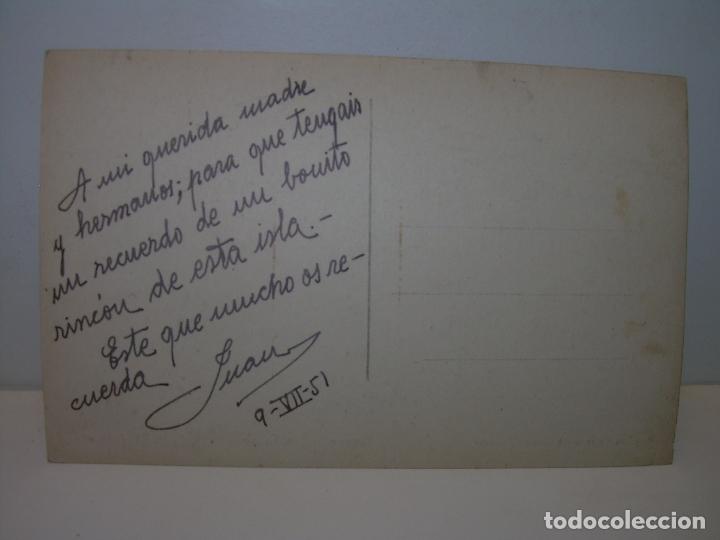 A mi querida madre
y hermanos; para que tengais
un recuerdo de un bonito
rincón de esta isla.-
Este que mucho os re-
cuerda Juan
9-VII-51
todocoleccion